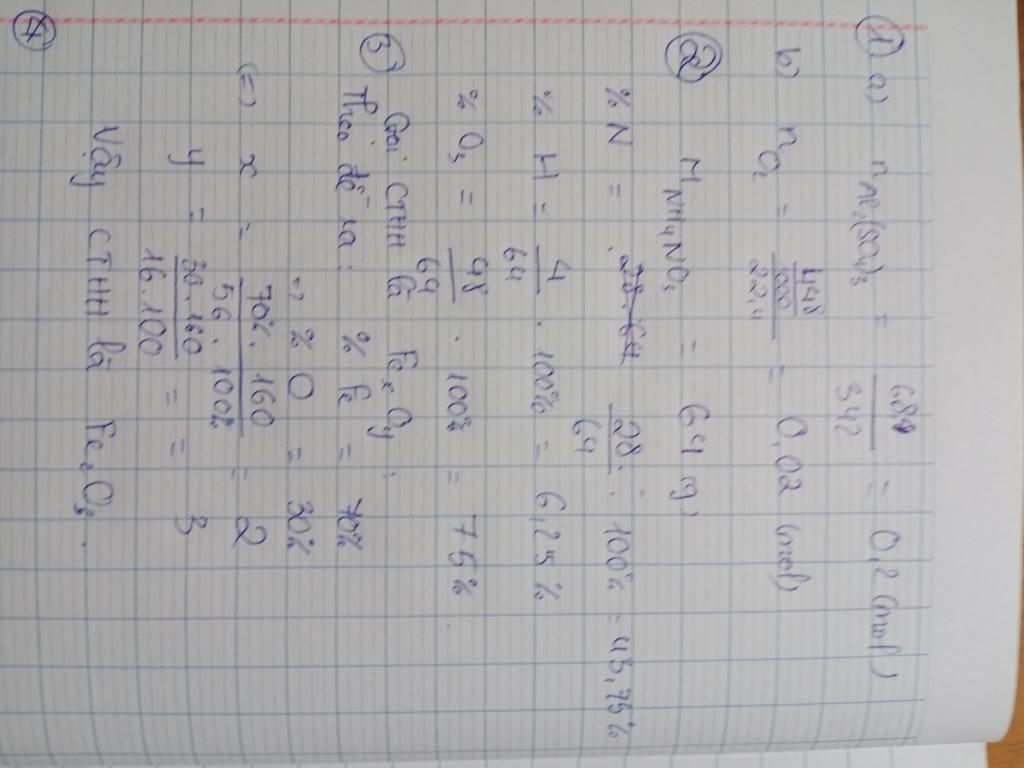 ① a) nAl₂(SO₄)₃ = 68,4/342 = 0,2 (mol)
b) nO₂ = (448/1000)/22,4 = 0,02 (mol)
② MNH₄NO₃ = 64 (g)
% N = 28/64 . 100% = 43,75%
% H = 4/64 . 100% = 6,25%
% O₃ = 48/64 . 100% = 75%
③ Gọi CTHH là FeₓOᵧ :
Theo đề ra : % Fe = 70%
=> % O = 30%
(=) x = 70%.160/56.100% = 2
y = 30.160/16.100 = = 3
Vậy CTHH là Fe₂O₃.
④